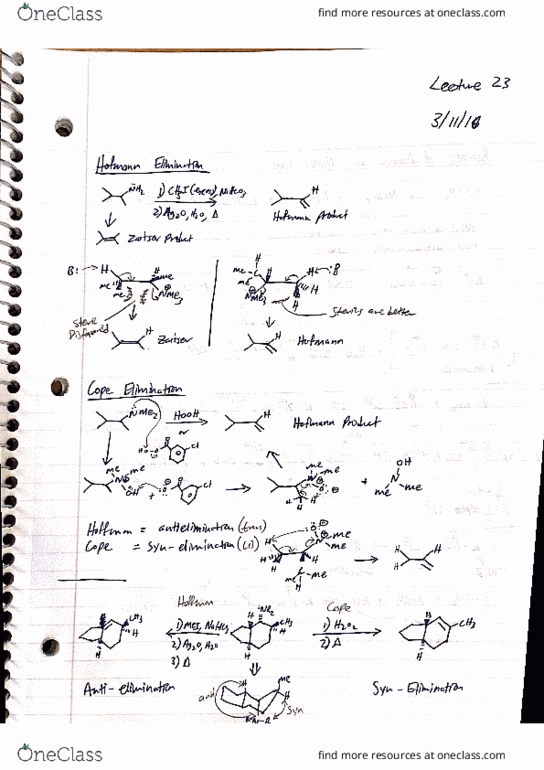 OneClass
find more resources at oneclass.com
Lecture 23
3/11/16
Hofmann Elimination
NH2
1) CH3I (excess), NaHCO3
2) Ag2O, H2O, Δ
H
Hofmann Product
Zaitsev Product
B: H H me
me me NMe3
Steric Disfavored
Zaitsev
me H H :B
me H
NMe3 H
Sterics are better
H
Hofmann
Cope Elimination
NMe2
HOOH
or
H
Hofmann Product
Cl
me me
OH + Cl
me me
+ OH
N
me me
Hoffman = antielimination (trans)
Cope = syn-elimination (cis)
me
me
me me
H
H
H
Hoffman
Cope
CH3
H
1) MeI, NaHCO3
2) Ag2O, H2O
3) Δ
NR2
CH3
H
1) H2O2
2) Δ
CH3
H
Anti-elimination
anti
me
H
Syn
Syn-Elimination
OneClass
find more resources at oneclass.com